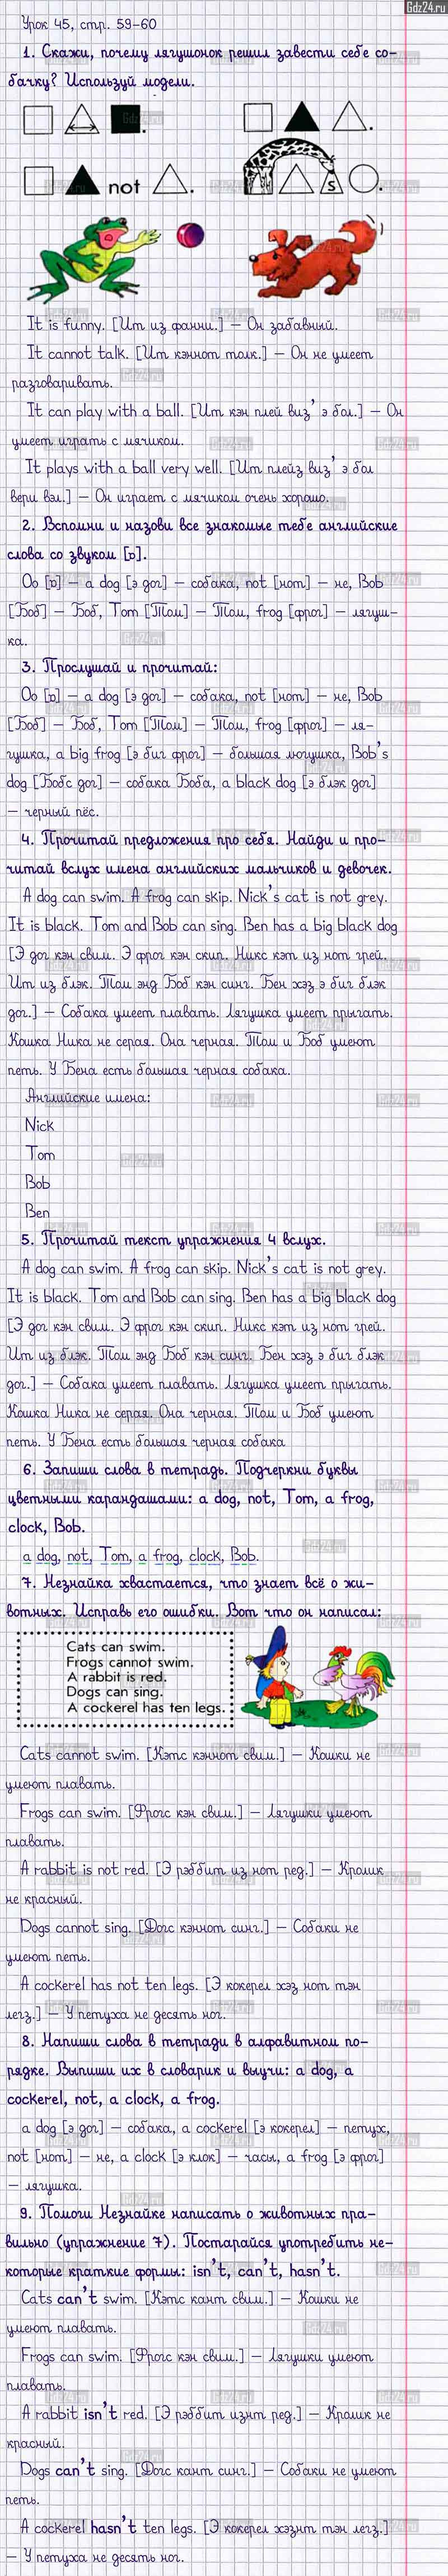 Gdz24.ru
Урок 45, стр. 59-60
1. Скажи, почему лягушонок решил завести себе со-
бачку? Используй модели.
not
s
It is funny. [Ит из фанни.] – Он забавный.
It cannot talk. [Ит кэннот толк.] – Он не умеет
разговаривать.
It can play with a ball. [Ит кэн плей виз' э бол.] – Он
умеет играть с мячиком.
It plays with a ball very well. [Ит плейз виз' э бол
вери вэл.] – Он играет с мячиком очень хорошо.
2. Вспомни и назови все знакомые тебе английские
слова со звуком [ɒ].
Oo [ɒ] – a dog [э дог] – собака, not [нот] – не, Bob
[Боб] – Боб, Tom [Том] – Том, frog [фрог] – лягуш-
ка.
3. Прослушай и прочитай:
Oo [ɒ] – a dog [э дог] – собака, not [нот] – не, Bob
[Боб] – Боб, Tom [Том] – Том, frog [фрог] – ля-
гушка, a big frog [э биг фрог] – большая лягушка, Bob's
dog [Бобс дог] – собака Боба, a black dog [э блэк дог]
– черный пёс.
4. Прочитай предложения про себя. Найди и про-
читай вслух имена английских мальчиков и девочек.
A dog can swim. A frog can skip. Nick's cat is not grey.
It is black. Tom and Bob can sing. Ben has a big black dog
[Э дог кэн свим. Э фрог кэн скип. Никс кэт из нот грей.
Ит из блэк. Том энд Боб кэн синг. Бен хэз э биг блэк
дог.] – Собака умеет плавать. Лягушка умеет прыгать.
Кошка Ника не серая. Она черная. Том и Боб умеют
петь. У Бена есть большая черная собака.
Английские имена:
Nick
Tom
Bob
Ben
5. Прочитай текст упражнения 4 вслух.
A dog can swim. A frog can skip. Nick's cat is not grey.
It is black. Tom and Bob can sing. Ben has a big black dog
[Э дог кэн свим. Э фрог кэн скип. Никс кэт из нот грей.
Ит из блэк. Том энд Боб кэн синг. Бен хэз э биг блэк
дог.] – Собака умеет плавать. Лягушка умеет прыгать.
Кошка Ника не серая. Она черная. Том и Боб умеют
петь. У Бена есть большая черная собака
6. Запиши слова в тетрадь. Подчеркни буквы
цветными карандашами: a dog, not, Tom, a frog,
clock, Bob.
a dog, not, Tom, a frog, clock, Bob.
7. Незнайка хвастается, что знает всё о жи-
вотных. Исправь его ошибки. Вот что он написал:
Cats can swim.
Frogs cannot swim.
A rabbit is red.
Dogs can sing.
A cockerel has ten legs.
Cats cannot swim. [Кэтс кэннот свим.] – Кошки не
умеют плавать.
Frogs can swim. [Фрогс кэн свим.] – Лягушки умеют
плавать.
A rabbit is not red. [Э рэббит из нот ред.] – Кролик
не красный.
Dogs cannot sing. [Догс кэннот синг.] – Собаки не
умеют петь.
A cockerel has not ten legs. [Э кокерел хэз нот тэн
легз.] – У петуха не десять ног.
8. Напиши слова в тетради в алфавитном по-
рядке. Выпиши их в словарик и выучи: a dog, a
cockerel, not, a clock, a frog.
a dog [э дог] – собака, a cockerel [э кокерел] – петух,
not [нот] – не, a clock [э клок] – часы, a frog [э фрог]
– лягушка.
9. Помоги Незнайке написать о животных пра-
вильно (упражнение 7). Постарайся употребить не-
которые краткие формы: isn't, can't, hasn't.
Cats can't swim. [Кэтс кант свим.] – Кошки не
умеют плавать.
Frogs can swim. [Фрогс кэн свим.] – Лягушки умеют
плавать.
A rabbit isn't red. [Э рэббит изнт ред.] – Кролик не
красный.
Dogs can't sing. [Догс кант синг.] – Собаки не умеют
петь.
A cockerel hasn't ten legs. [Э кокерел хэзнт тэн легз.]
– У петуха не десять ног.